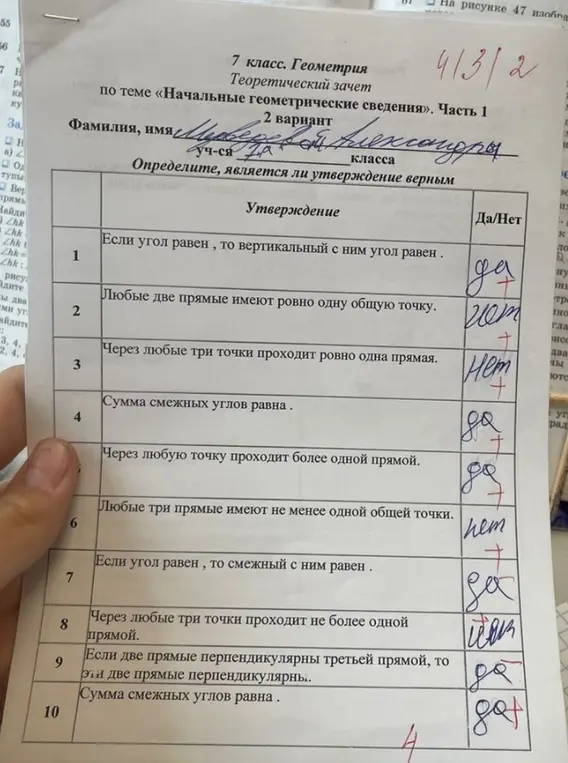 На рисунке 47
4/3/2
7 класс. Геометрия
Теоретический зачет
по теме «Начальные геометрические сведения». Часть 1
2 вариант
Фамилия, имя Александры
уч-ся 7а класса
Определите, является ли утверждение верным
Утверждение Да/Нет
1 Если угол равен , то вертикальный с ним угол равен . да +
2 Любые две прямые имеют ровно одну общую точку. нет +
3 Через любые три точки проходит ровно одна прямая. нет +
4 Сумма смежных углов равна . да +
Через любую точку проходит более одной прямой. да +
6 Любые три прямые имеют не менее одной общей точки. нет +
7 Если угол равен , то смежный с ним равен . да -
8 Через любые три точки проходит не более одной +
прямой.
9 Если две прямые перпендикулярны третьей прямой, то да -
эти две прямые перпендикулярны.
10 Сумма смежных углов равна . да +
4